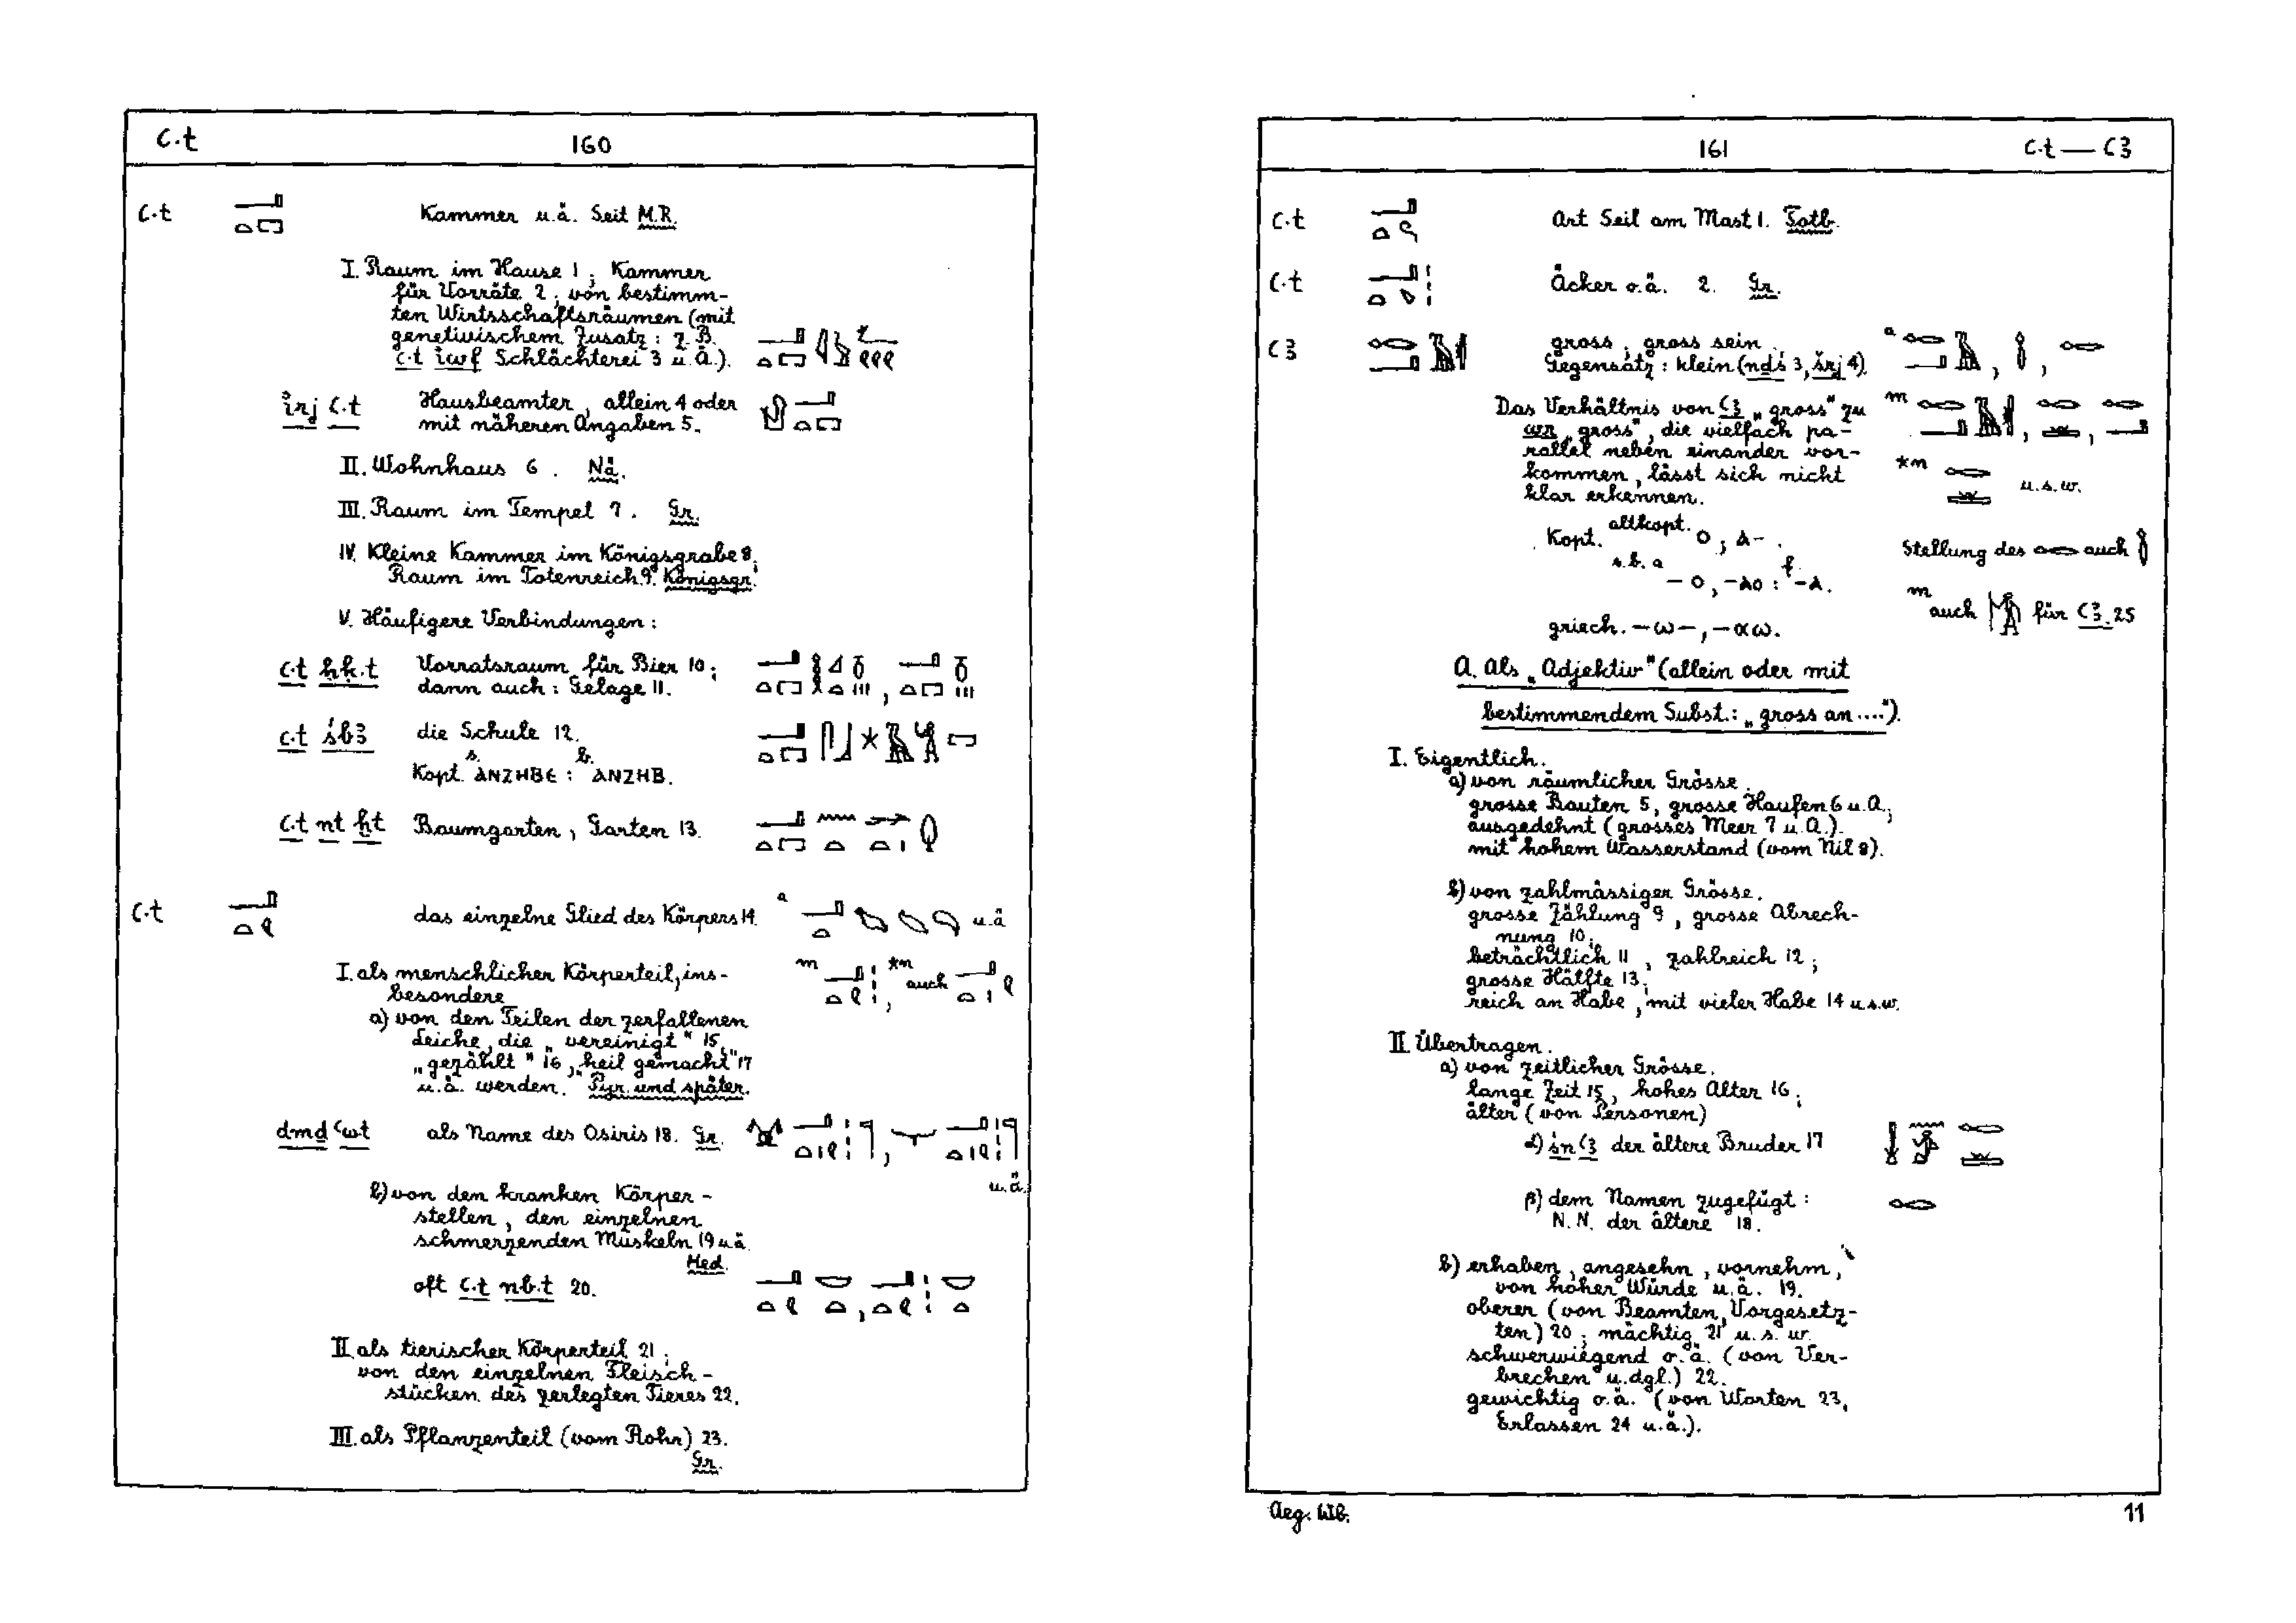 ꜥ.t
160
ꜥ.t 𓂝𓏏𓉐 Kammer u.ä. Seit M.R.
I. Raum im Hause 1; Kammer
für Vorräte 2; von bestimm-
ten Wirtsschaftsräumen (mit
genetivischem Zusatz: z.B.
ꜥ.t iwf Schlächterei 3 u.Ä.).
irj ꜥ.t Hausbeamter, allein 4 oder
mit näheren Angaben 5.
II. Wohnhaus 6. Nä.
III. Raum im Tempel 7. Gr.
IV. Kleine Kammer im Königsgrabe 8;
Raum im Totenreich 9. Königsgr.
V. Häufigere Verbindungen:
ꜥ.t ḥḳ.t Vorratsraum für Bier 10;
dann auch: Gelage 11.
ꜥ.t śbꜣ die Schule 12.
Kopt. s. ⲁⲛⲍⲏⲃⲉ : b. ⲁⲛⲍⲏⲃ.
ꜥ.t nt ḫt Baumgarten, Garten 13.
ꜥ.t das einzelne Glied des Körpers 14. a u.ä
I. als menschlicher Körperteil, ins- m *m auch
besondere
a) von den Teilen der zerfallenen
Leiche, die „vereinigt" 15,
„gezählt" 16, „heil gemacht" 17
u.ä. werden. Pyr. und später.
dmḏ ꜥwt als Name des Osiris 18. Gr.
u.ä.
b) von den kranken Körper-
stellen, den einzelnen
schmerzenden Muskeln 19 u.ä.
Med.
oft ꜥ.t nb.t 20.
II. als tierischer Körperteil 21;
von den einzelnen Fleisch-
stücken des zerlegten Tieres 22.
III. als Pflanzenteil (vom Rohr) 23.
Gr.
161
ꜥ.t — ꜥꜣ
ꜥ.t Art Seil am Mast 1. Totb.
ꜥ.t Äcker o.ä. 2. Gr.
ꜥꜣ gross, gross sein. a
Gegensatz: klein (nḏś 3, šrj 4).
Das Verhältnis von ꜥꜣ „gross" zu m
wr „gross", die vielfach pa-
rallel neben einander vor-
kommen, lässt sich nicht *m u.s.w.
klar erkennen.
Kopt. altkopt. ⲟ, ⲁ-.
s.b. a -ⲟ, -ⲁⲟ : f. -ⲁ.
Stellung des auch
m auch für ꜥꜣ. 25
griech. -ω-, -αω.
A. Als „Adjektiv" (allein oder mit
bestimmendem Subst.: „gross an ....").
I. Eigentlich.
a) von räumlicher Grösse.
grosse Bauten 5, grosse Haufen 6 u.Ä.;
ausgedehnt (grosses Meer 7 u.Ä.).
mit hohem Wasserstand (vom Nil 8).
b) von zahlmässiger Grösse.
grosse Zählung 9, grosse Abrech-
nung 10;
beträchtlich 11, zahlreich 12;
grosse Hälfte 13;
reich an Habe, mit vieler Habe 14 u.s.w.
II. Übertragen.
a) von zeitlicher Grösse.
lange Zeit 15, hohes Alter 16;
älter (von Personen)
α) śn ꜥꜣ der ältere Bruder 17
β) dem Namen zugefügt:
N.N. der ältere 18.
b) erhaben, angesehn, vornehm,
von hoher Würde u.ä. 19.
oberer (von Beamten, Vorgesetz-
ten) 20; mächtig 21 u.s.w.
schwerwiegend o.ä. (von Ver-
brechen u.dgl.) 22.
gewichtig o.ä. (von Worten 23,
Erlassen 24 u.ä.).
Aeg. Wb.
11